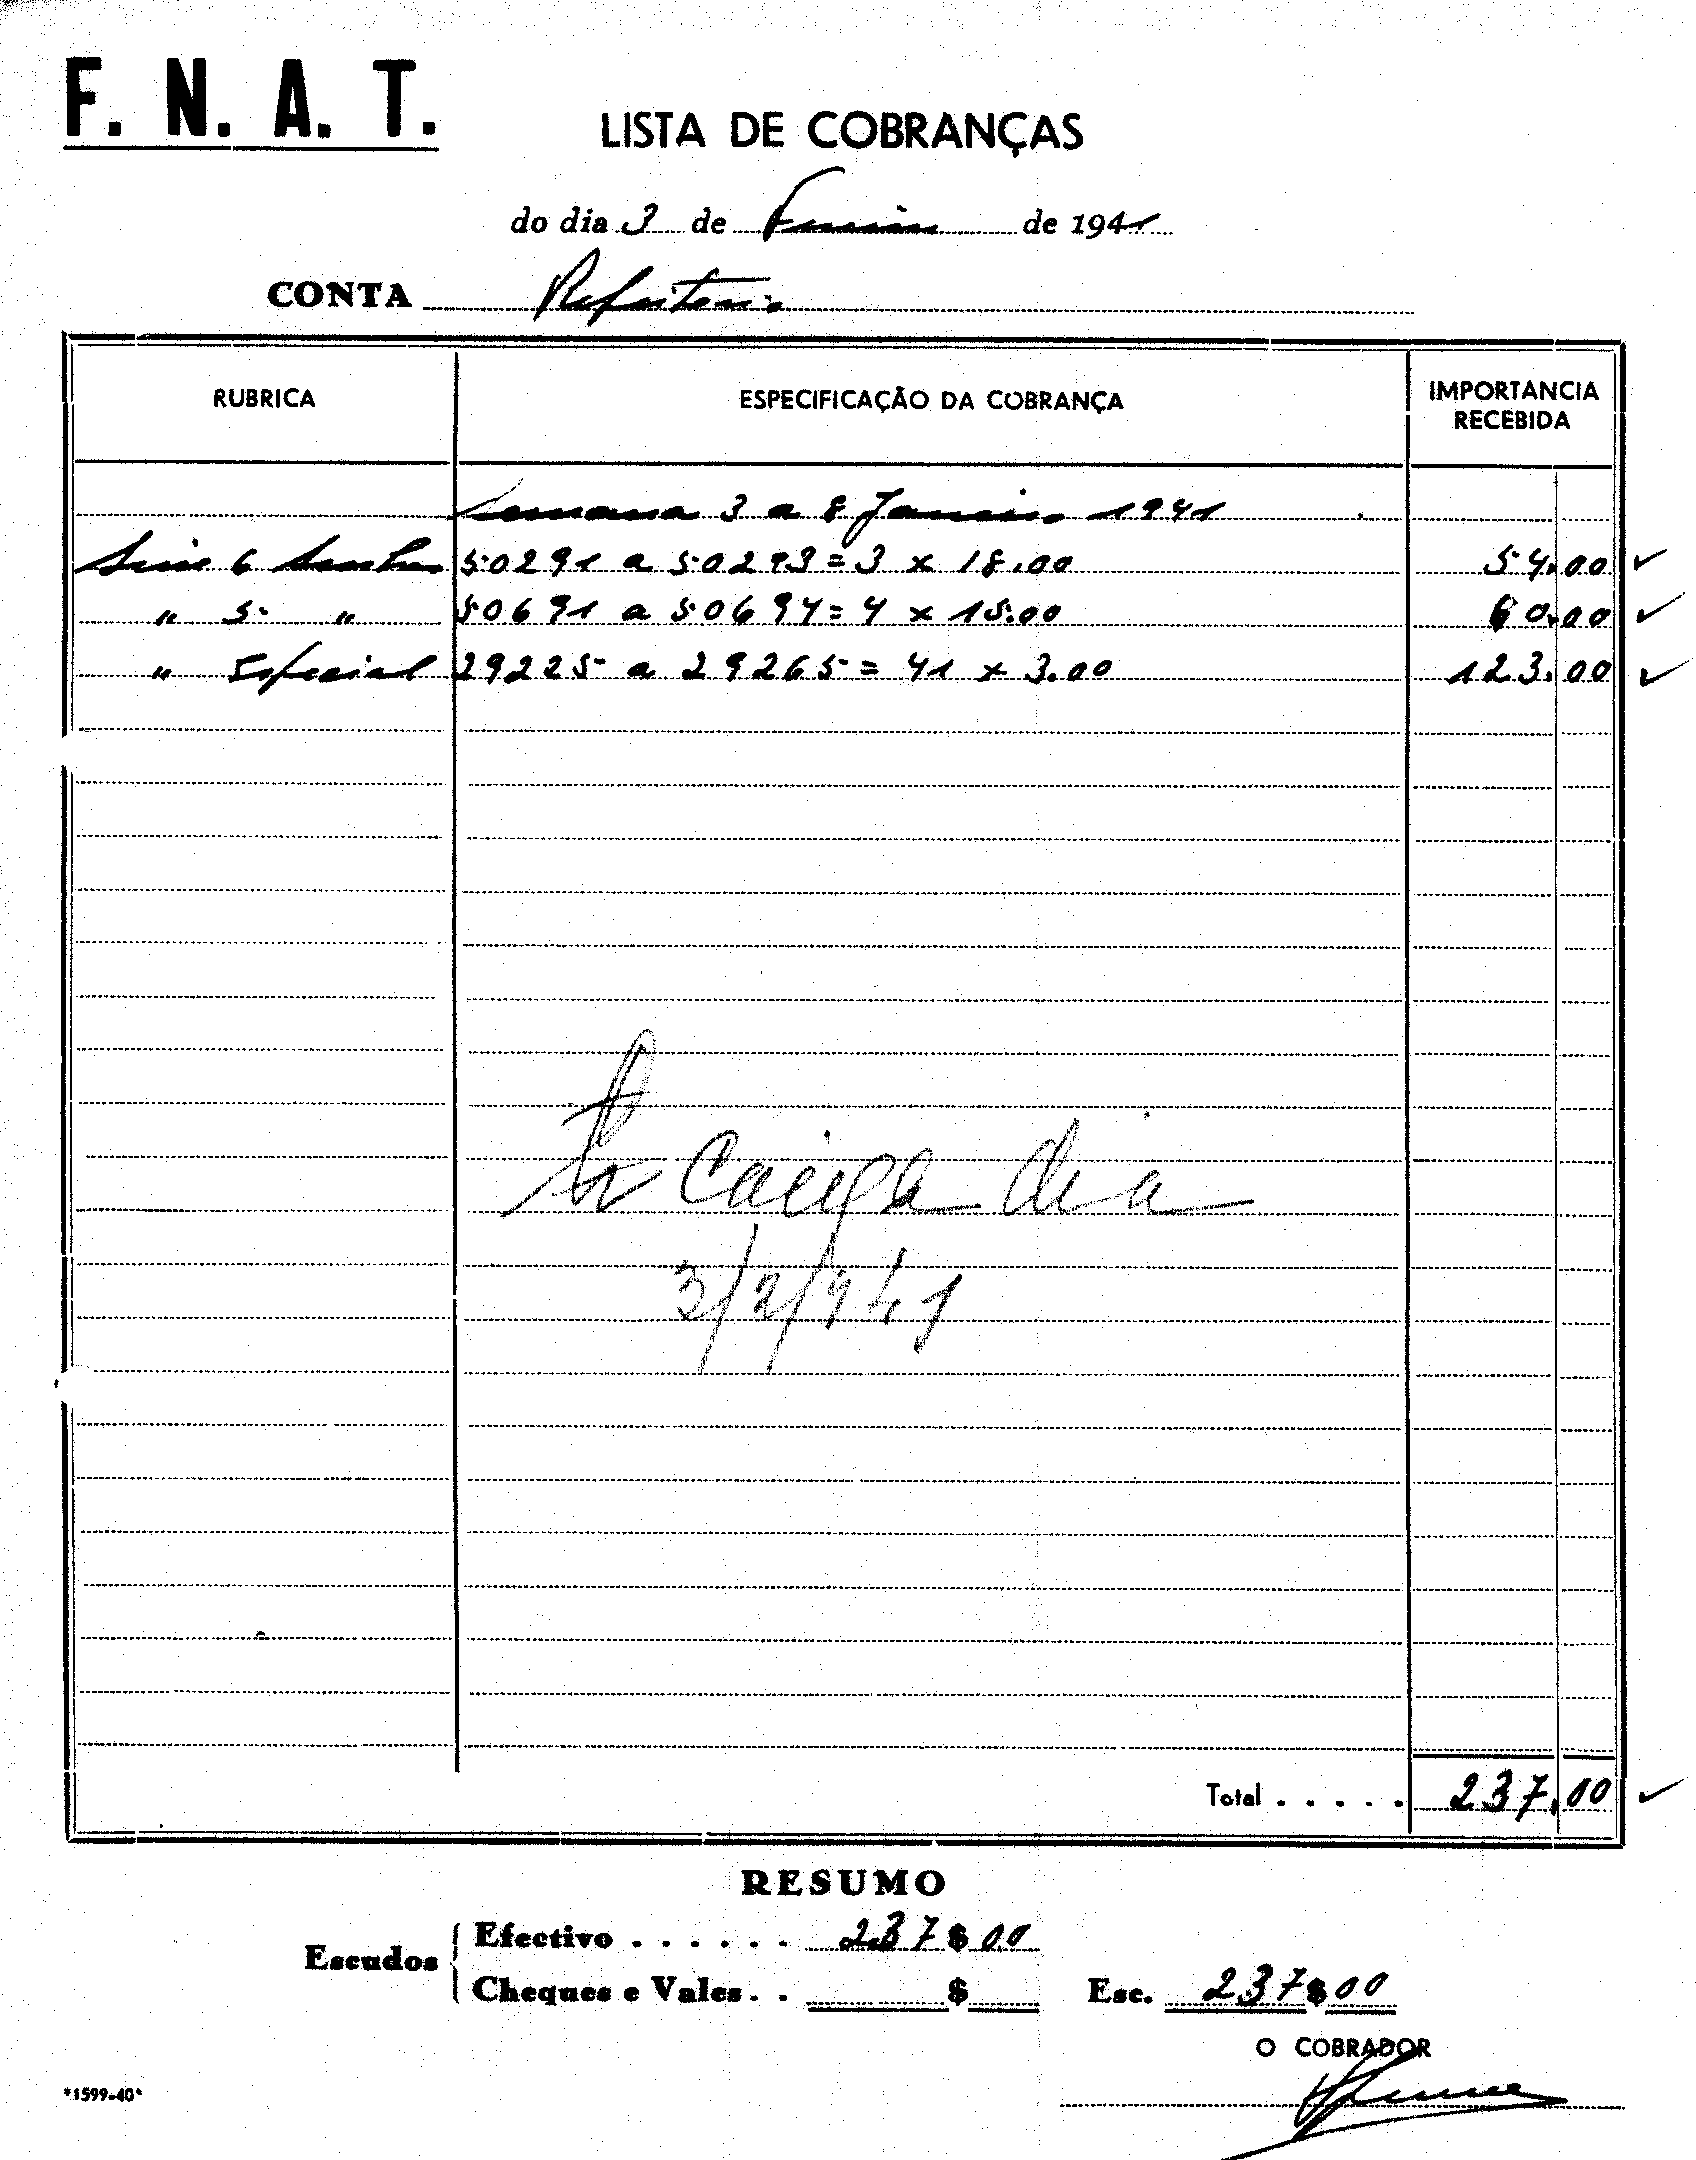 F. N. A. T.
LISTA DE COBRANÇAS
do dia 3 de Fevereiro de 1941
CONTA Refeitorio
RUBRICA
ESPECIFICAÇÃO DA COBRANÇA
IMPORTANCIA RECEBIDA
Semana 3 a 8 Janeiro 1941
Serie 6 Senhas 50291 a 50293 = 3 x 18.00 54.00 ✓
" 5 " 50691 a 50694 = 4 x 15.00 60.00 ✓
" Especial 29225 a 29265 = 41 x 3.00 123.00 ✓
Caixa dia
3/2/941
Total . . . . . 237.00 ✓
RESUMO
Escudos
Efectivo . . . . . . 237$00
Cheques e Vales . . $
Esc. 237$00
O COBRADOR
*1599-40*